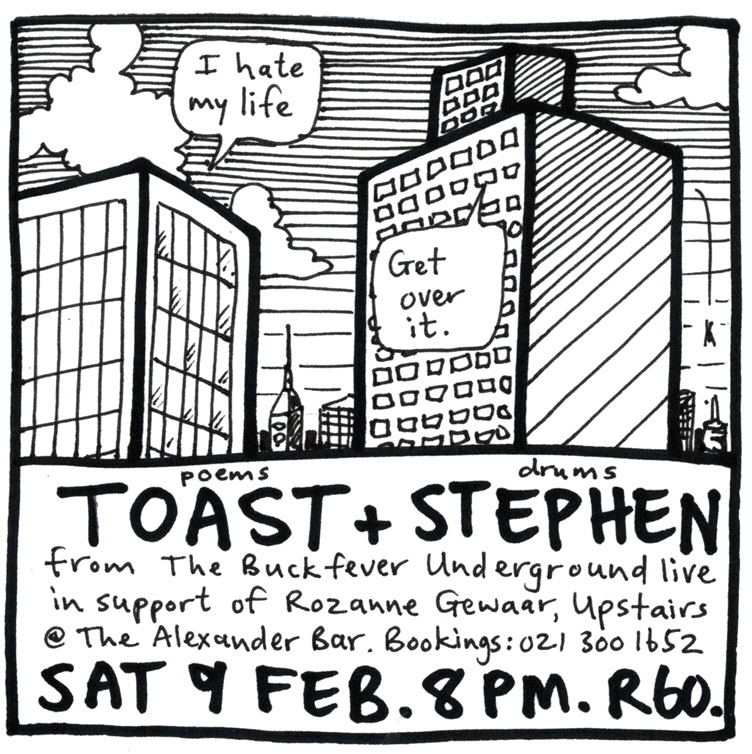 I hate
my life
Get
over
it.
poems drums
TOAST + STEPHEN
from The Buckfever Underground live
in support of Rozanne Gewaar, Upstairs
@ The Alexander Bar. Bookings: 021 300 1652
SAT 9 FEB. 8 PM. R60.